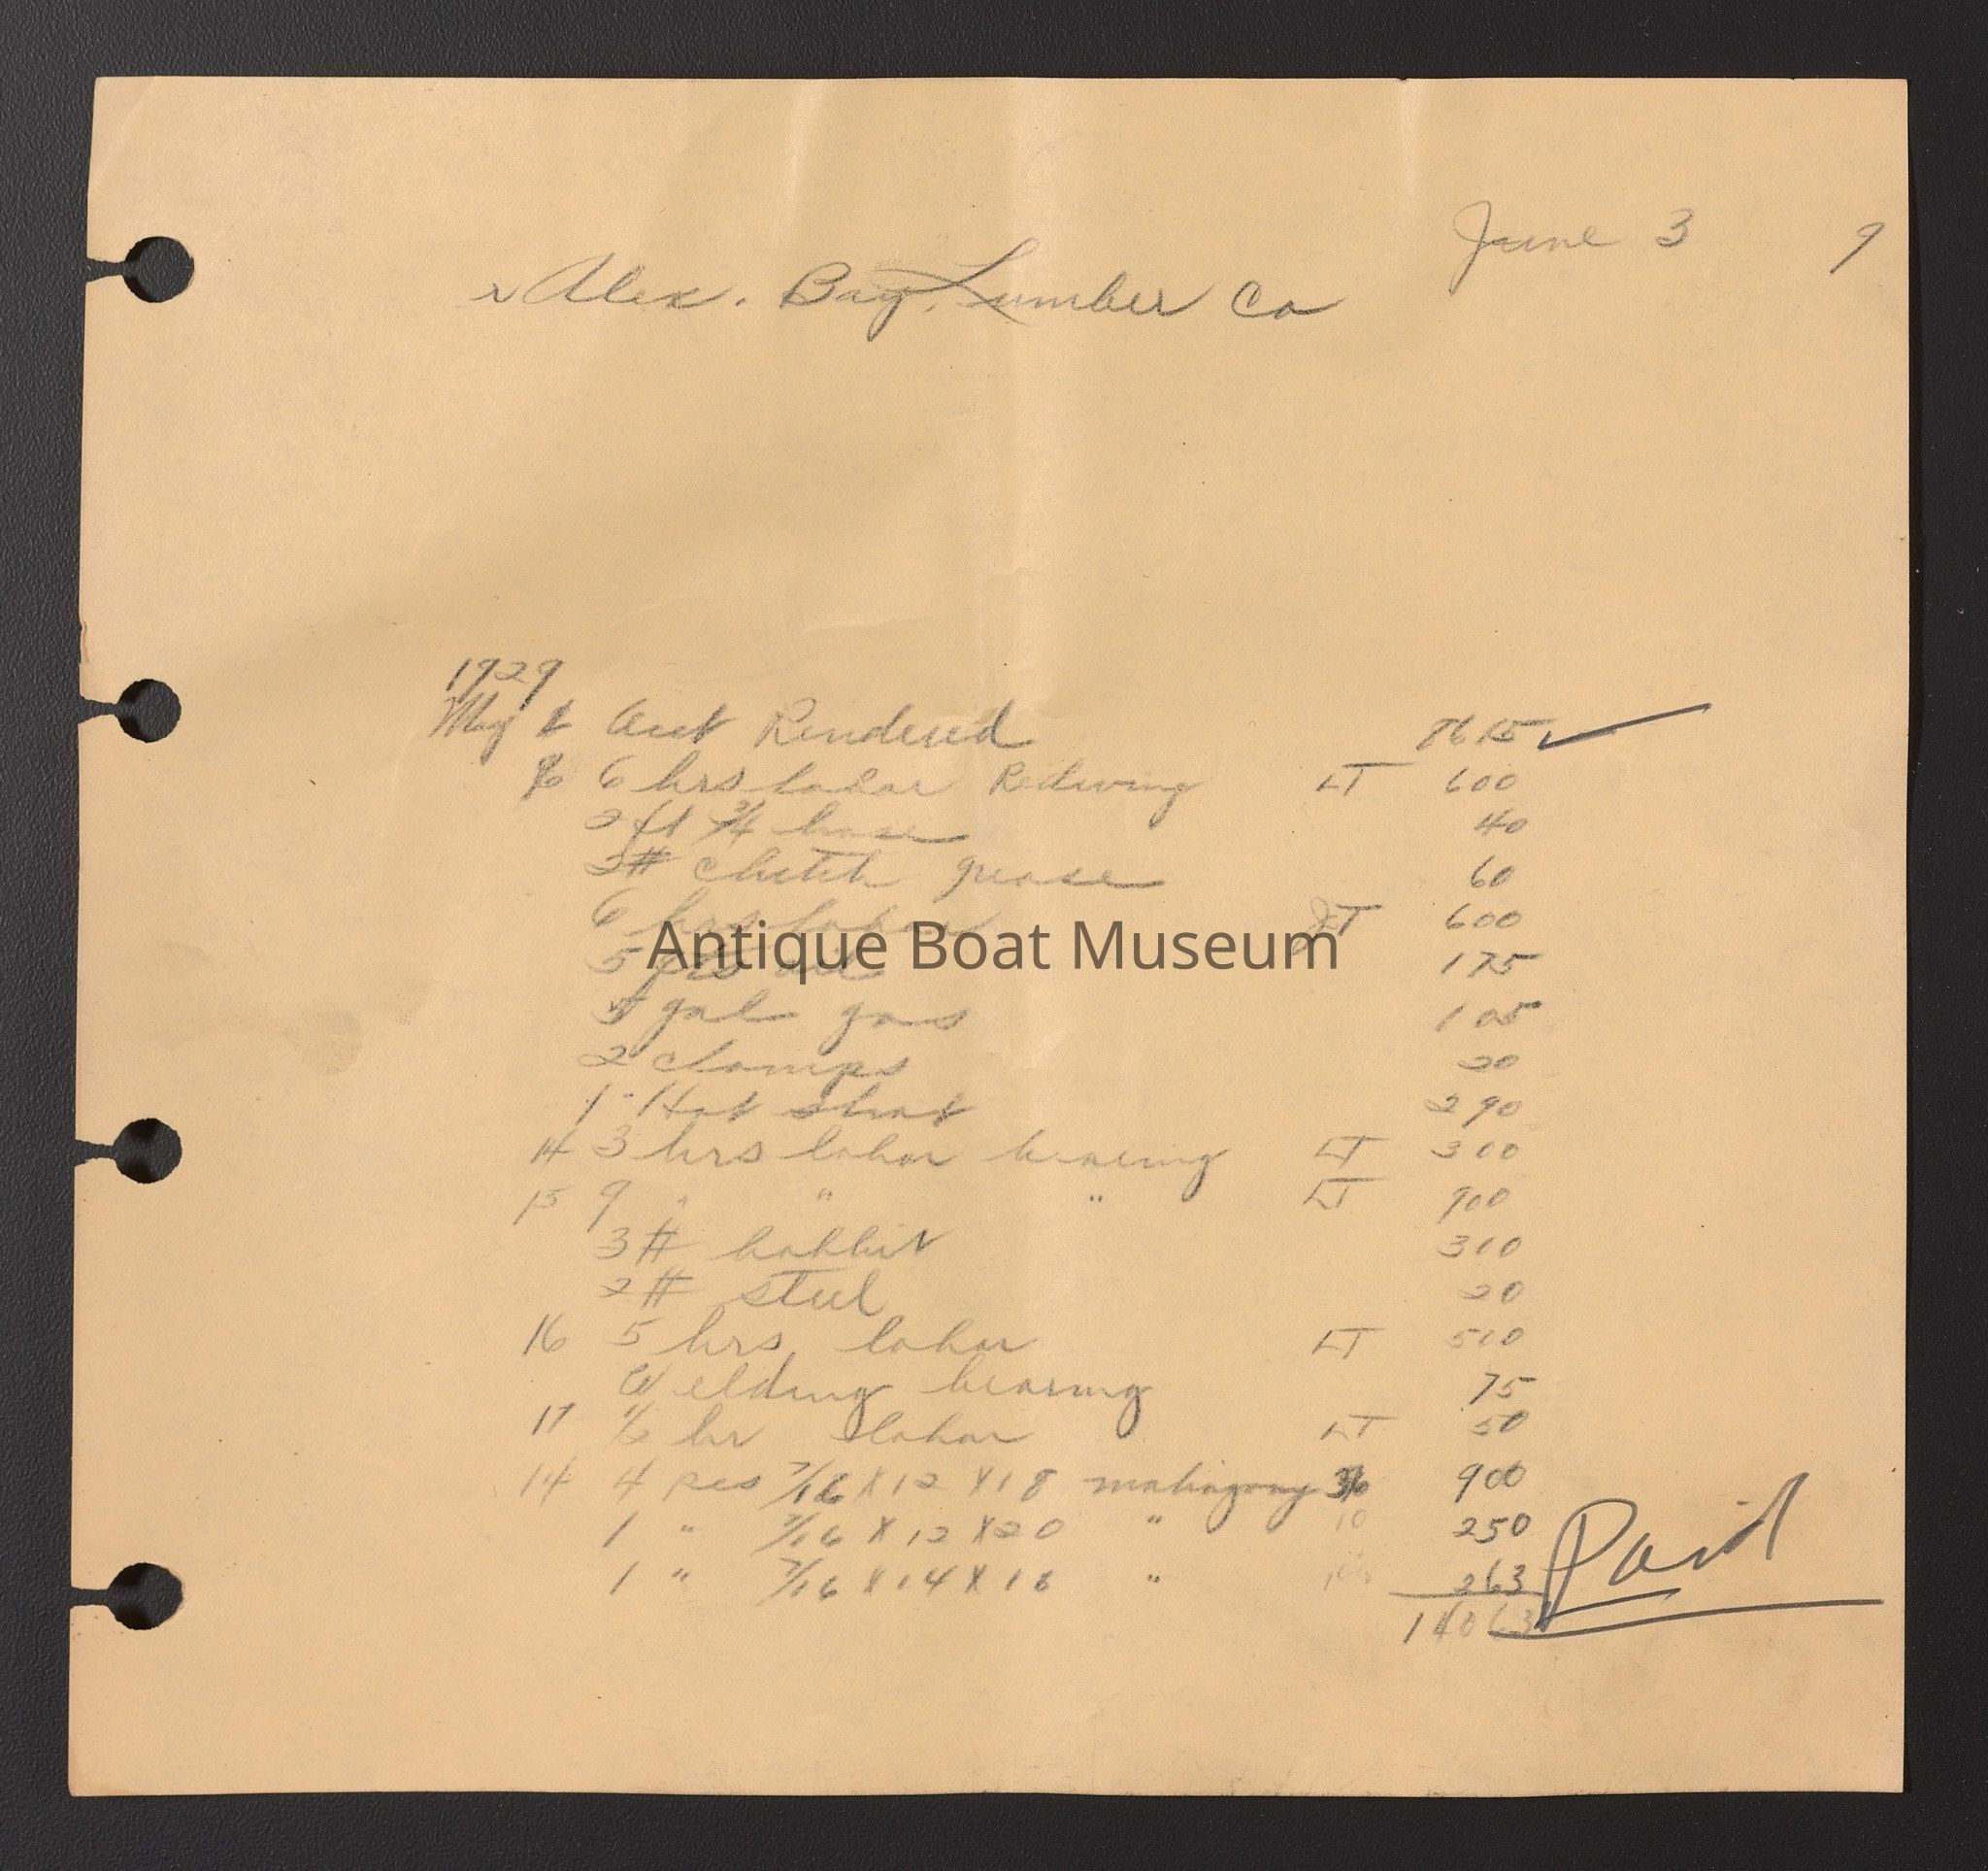 June 3 9
Alex. Bay. Lumber Co
1929
May 1 Acct Rendered 86 15
6 hrs labor LT 6 00
2 ft 3/4 hose 40
2# clutch grease 60
6 hrs labor LT 6 00
Antique Boat Museum
5 1 75
5 gal gas 1 05
2 clamps 20
1 - Hot shot 2 90
14 3 hrs labor bearing LT 3 00
15 9 " " " LT 9 00
3# babbit 3 10
2# steel 20
16 5 hrs labor LT 5 00
Welding bearing 75
17 1/2 hr labor LT 50
14 4 pcs 7/16 X 12 X 18 mahogany 36 9 00
1 " 7/16 X 12 X 20 " 10 2 50
1 " 7/16 X 14 X 18 " 2 63
Paid
140 63